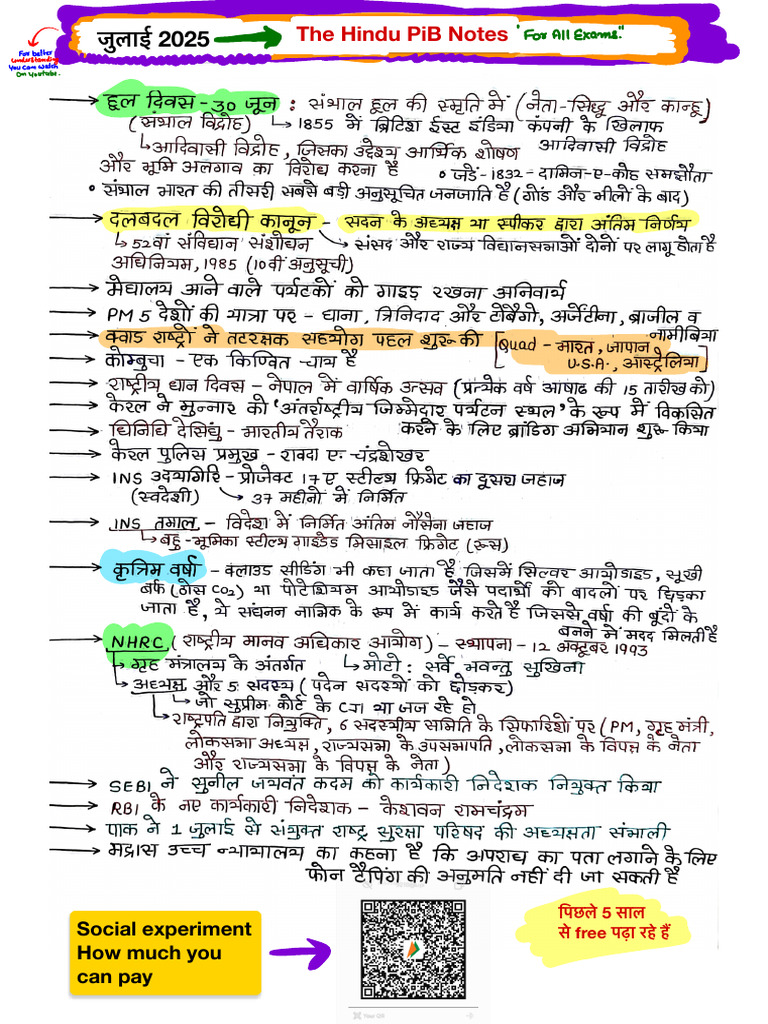 जुलाई 2025 → The Hindu PiB Notes "For All Exams."
For better
understanding
You can watch
On Youtube.
→ हूल दिवस - 30 जून : संथाल हूल की स्मृति में (नेता-सिद्धू और कान्हू)
(संथाल विद्रोह) ↳ 1855 में ब्रिटिश ईस्ट इंडिया कंपनी के खिलाफ
↳ आदिवासी विद्रोह, जिसका उद्देश्य आर्थिक शोषण आदिवासी विद्रोह
और भूमि अलगाव का विरोध करना है • जड़ें-1832- दामिन-ए-कोह समझौता
• संथाल भारत की तीसरी सबसे बड़ी अनुसूचित जनजाति है (गोंड और भीलों के बाद)
→ दलबदल विरोधी कानून - सदन के अध्यक्ष या स्पीकर द्वारा अंतिम निर्णय
↳ 52वां संविधान संशोधन → संसद और राज्य विधानसभाओं दोनों पर लागू होता है
अधिनियम, 1985 (10वीं अनुसूची)
→ मेघालय आने वाले पर्यटकों को गाइड रखना अनिवार्य
→ PM 5 देशों की यात्रा पर - घाना, त्रिनिदाद और टोबैगो, अर्जेंटीना, ब्राजील व
नामीबिया
→ क्वाड राष्ट्रों ने तटरक्षक सहयोग पहल शुरू की [Quad - भारत, जापान,
U.S.A., आस्ट्रेलिया]
→ कोम्बुचा - एक किण्वित चाय है
→ राष्ट्रीय धान दिवस - नेपाल में वार्षिक उत्सव (प्रत्येक वर्ष आषाढ की 15 तारीख को)
→ केरल ने मुन्नार को 'अंतर्राष्ट्रीय जिम्मेदार पर्यटन स्थल' के रूप में विकसित
करने के लिए ब्रांडिंग अभियान शुरू किया
→ धिनिधि देसिंघु - भारतीय तैराक
→ केरल पुलिस प्रमुख - रावदा ए. चंद्रशेखर
→ INS उदयगिरि - प्रोजेक्ट 17ए स्टील्थ फ्रिगेट का दूसरा जहाज
(स्वदेशी) ↳ 37 महीनों में निर्मित
→ INS तमाल - विदेश में निर्मित अंतिम नौसेना जहाज
↳ बहु-भूमिका स्टील्थ गाइडेड मिसाइल फ्रिगेट (रूस)
→ कृत्रिम वर्षा - क्लाउड सीडिंग भी कहा जाता है जिसमें सिल्वर आयोडाइड, सूखी
बर्फ (ठोस CO2) या पोटेशियम आयोडाइड जैसे पदार्थों को बादलों पर छिड़का
जाता है, ये संघनन नाभिक के रूप में कार्य करते हैं जिससे वर्षा की बूंदों के
बनने में मदद मिलती है
→ NHRC (राष्ट्रीय मानव अधिकार आयोग) - स्थापना - 12 अक्टूबर 1993
↳ गृह मंत्रालय के अंतर्गत ↳ मोटो : सर्वे भवन्तु सुखिना
↳ अध्यक्ष और 5 सदस्य (पदेन सदस्यों को छोड़कर)
↳ जो सुप्रीम कोर्ट के CJI या जज रहे हो
↳ राष्ट्रपति द्वारा नियुक्ति, 6 सदस्यीय समिति के सिफारिशों पर (PM, गृह मंत्री,
लोकसभा अध्यक्ष, राज्यसभा के उपसभापति, लोकसभा के विपक्ष के नेता
और राज्यसभा के विपक्ष के नेता)
→ SEBI ने सुनील जयवंत कदम को कार्यकारी निदेशक नियुक्त किया
→ RBI के नए कार्यकारी निदेशक - केशवन रामचंद्रम
→ पाक ने 1 जुलाई से संयुक्त राष्ट्र सुरक्षा परिषद की अध्यक्षता संभाली
→ मद्रास उच्च न्यायालय का कहना है कि अपराध का पता लगाने के लिए
फोन टैपिंग की अनुमति नहीं दी जा सकती है
Social experiment
How much you
can pay
पिछले 5 साल
से free पढ़ा रहे हैं
Your QR